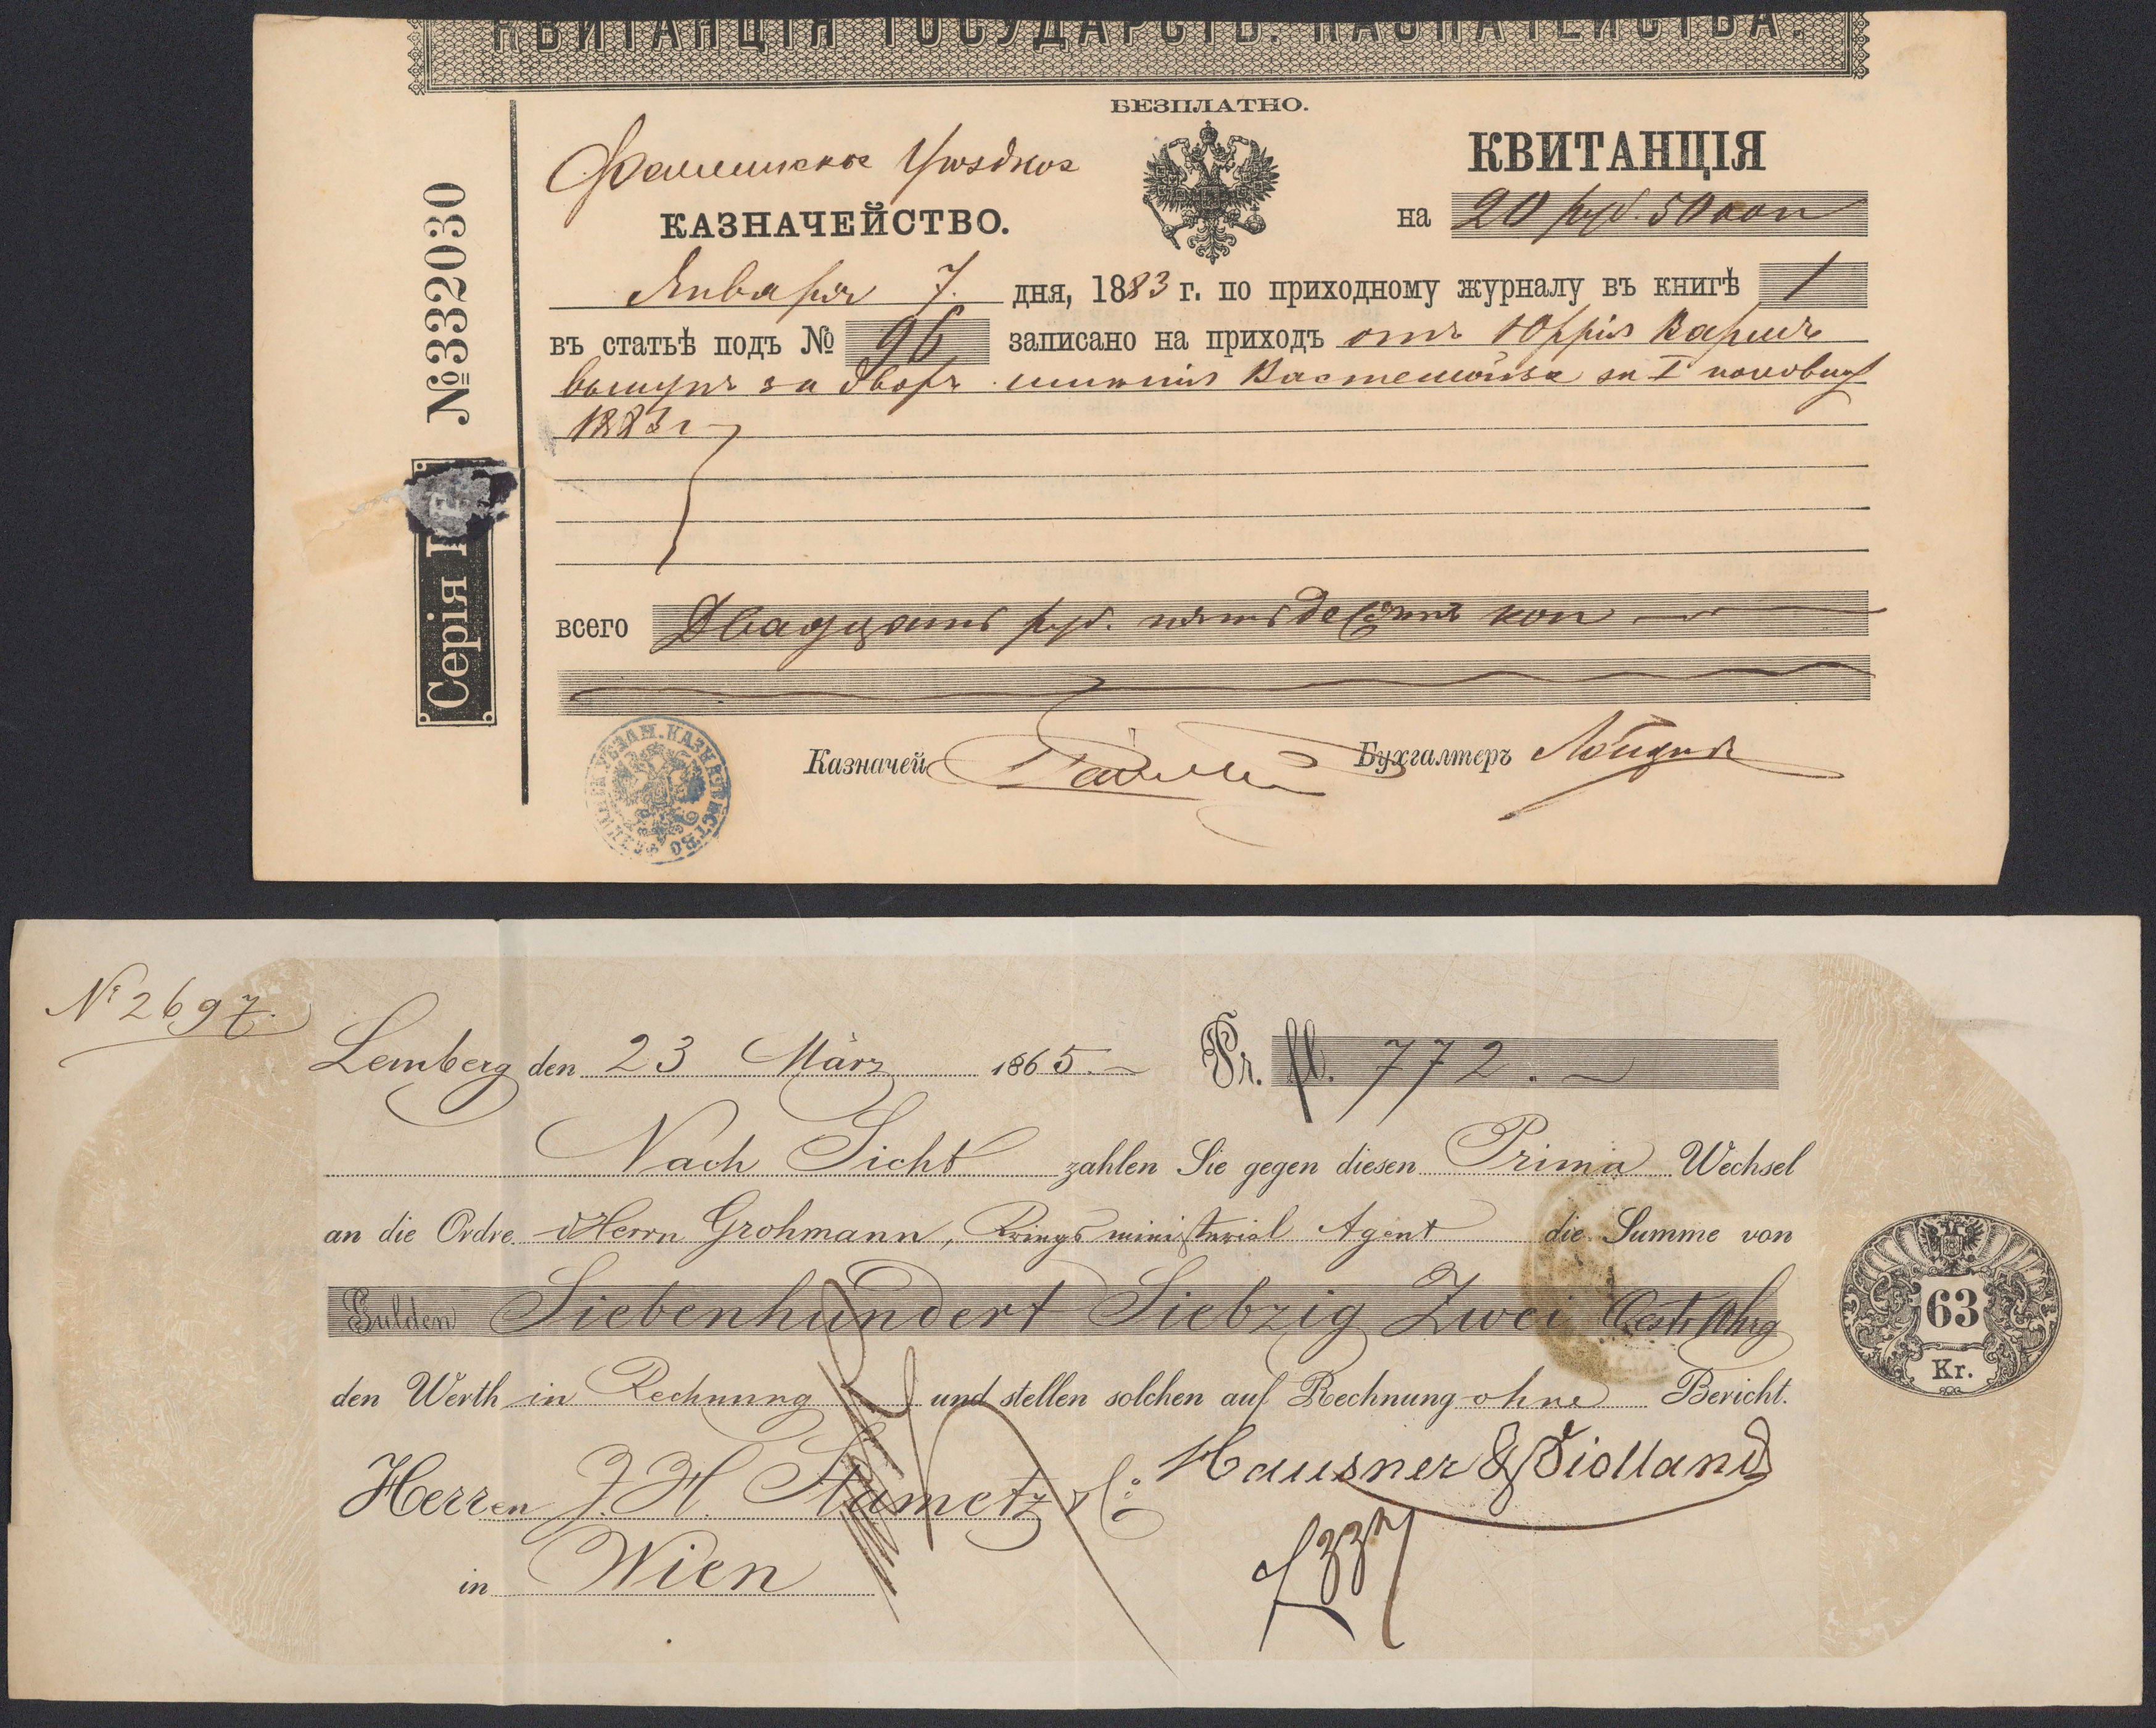 КВИТАНЦІЯ ГОСУДАРСТВ. КАЗНАЧЕЙСТВА.
БЕЗПЛАТНО.
КВИТАНЦІЯ
КАЗНАЧЕЙСТВО.
на 20 руб. 50 коп
Января 7. дня, 1883 г. по приходному журналу въ книгѣ 1
въ статьѣ подъ № 96 записано на приходъ отъ Юррія
за дворъ за I
1883 г
всего Двадцать руб. пятьдесятъ коп
Казначей
Бухгалтеръ
№332030
Серія
УѢЗДН. КАЗНАЧЕЙСТВО
№ 2697.
Lemberg den 23 März 1865. Pr. fl. 772.
Nach Sicht zahlen Sie gegen diesen Prima Wechsel
an die Ordre d Herrn Grohmann, Kriegsministerial Agent die Summe von
Gulden Siebenhundert Siebzig Zwei Oestr Whrg
den Werth in Rechnung und stellen solchen auf Rechnung ohne Bericht.
Herren J. H. Stametz & Co
Hausner & Violland
in Wien
63
Kr.